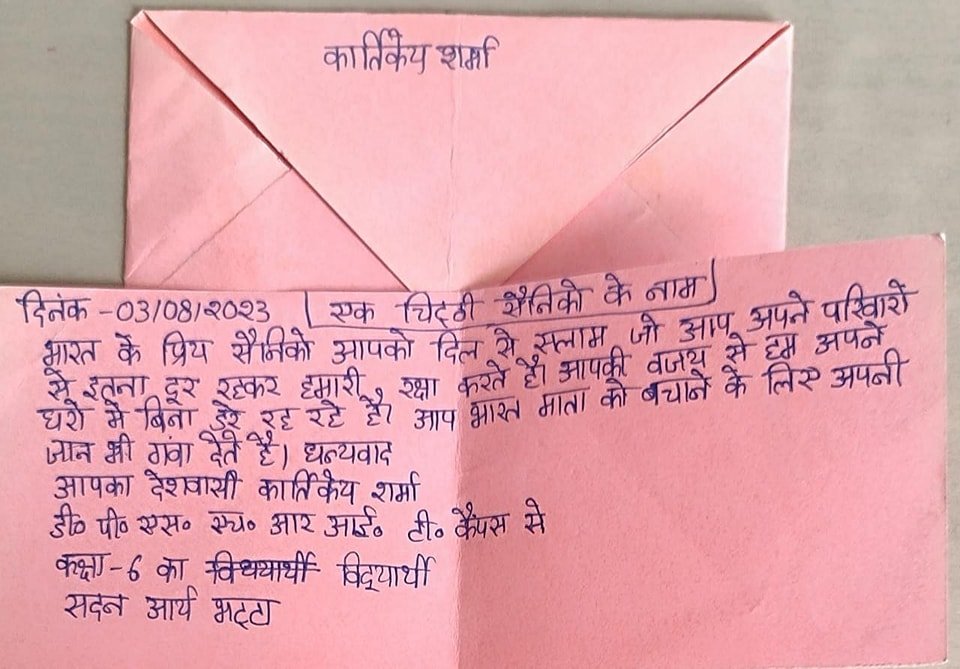 कार्तिकेय शर्मा
दिनंक -03/08/2023 एक चिट्ठी सैनिको के नाम
भारत के प्रिय सैनिको आपको दिल से सलाम जो आप अपने परिवारो
से इतना दूर रहकर हमारी रक्षा करते है। आपकी वजय से हम अपने
घरो मे बिना डरे रह रहे है। आप भारत माता को बचाने के लिए अपनी
जान भी गंवा देते है। धन्यवाद
आपका देशवासी कार्तिकेय शर्मा
डी० पी० एस० एच० आर आई० टी० कैंपस से
कक्षा -6 का विधयार्थी विद्यार्थी
सदन आर्य भट्टा